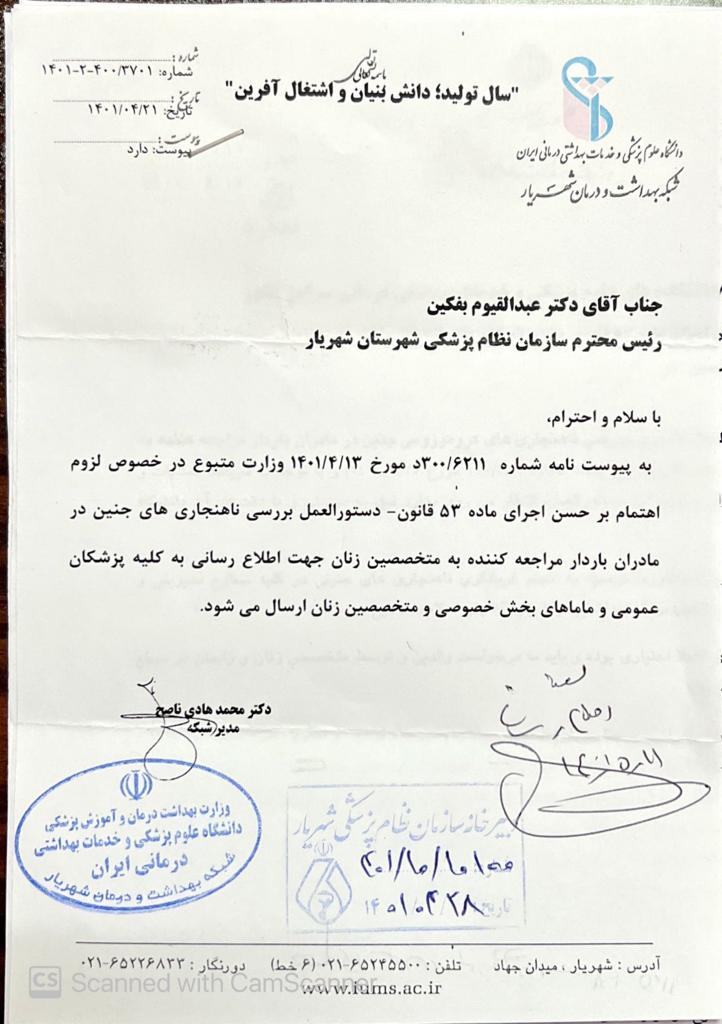 باسمه تعالی
"سال تولید؛ دانش بنیان و اشتغال آفرین"
شماره :
شماره: ۱۴۰۱-۲-۴۰۰/۳۷۰۱
تاریخ :
تاریخ: ۱۴۰۱/۰۴/۲۱
پیوست :
پیوست: دارد
دانشگاه علوم پزشکی و خدمات بهداشتی درمانی ایران
شبکه بهداشت و درمان شهریار
جناب آقای دکتر عبدالقیوم بفکین
رئیس محترم سازمان نظام پزشکی شهرستان شهریار
با سلام و احترام،
به پیوست نامه شماره ۳۰۰/۶۲۱۱د مورخ ۱۴۰۱/۴/۱۳ وزارت متبوع در خصوص لزوم
اهتمام بر حسن اجرای ماده ۵۳ قانون- دستورالعمل بررسی ناهنجاری های جنین در
مادران باردار مراجعه کننده به متخصصین زنان جهت اطلاع رسانی به کلیه پزشکان
عمومی و ماماهای بخش خصوصی و متخصصین زنان ارسال می شود.
دکتر محمد هادی ناصح
مدیر شبکه
وزارت بهداشت درمان و آموزش پزشکی
دانشگاه علوم پزشکی و خدمات بهداشتی
درمانی ایران
شبکه بهداشت و درمان شهریار
دبیرخانه سازمان نظام پزشکی شهریار
تاریخ: ۱۴۰۱/۰۴/۲۸
آدرس : شهریار ، میدان جهاد تلفن : ۶۵۲۴۵۵۰۰-۰۲۱ (۶ خط) دورنگار : ۶۵۲۲۶۸۳۳-۰۲۱
www.iums.ac.ir
CS Scanned with CamScanner